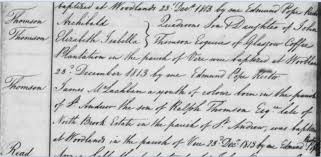 baptized at Woodlands 23 Decr 1813 by me Edmund Pope Rector
Thomson Archibald } Quadroon Son & Daughters of John
Thomson Elizabeth Isabella } Thomson Esquire of Glasgow Coffee
Plantation in the parish of Vere were baptized at Woodlands
23d December 1813 by me Edmund Pope Rector
Thomson James McLachlan a youth of colour born in the parish
of St Andrew the son of Ralph Thomson Esqr late of
North Brook Estate in the parish of St Andrew, was baptized
at Woodlands in the parish of Vere 23 Decr 1813 by me Edmund Pope
Read